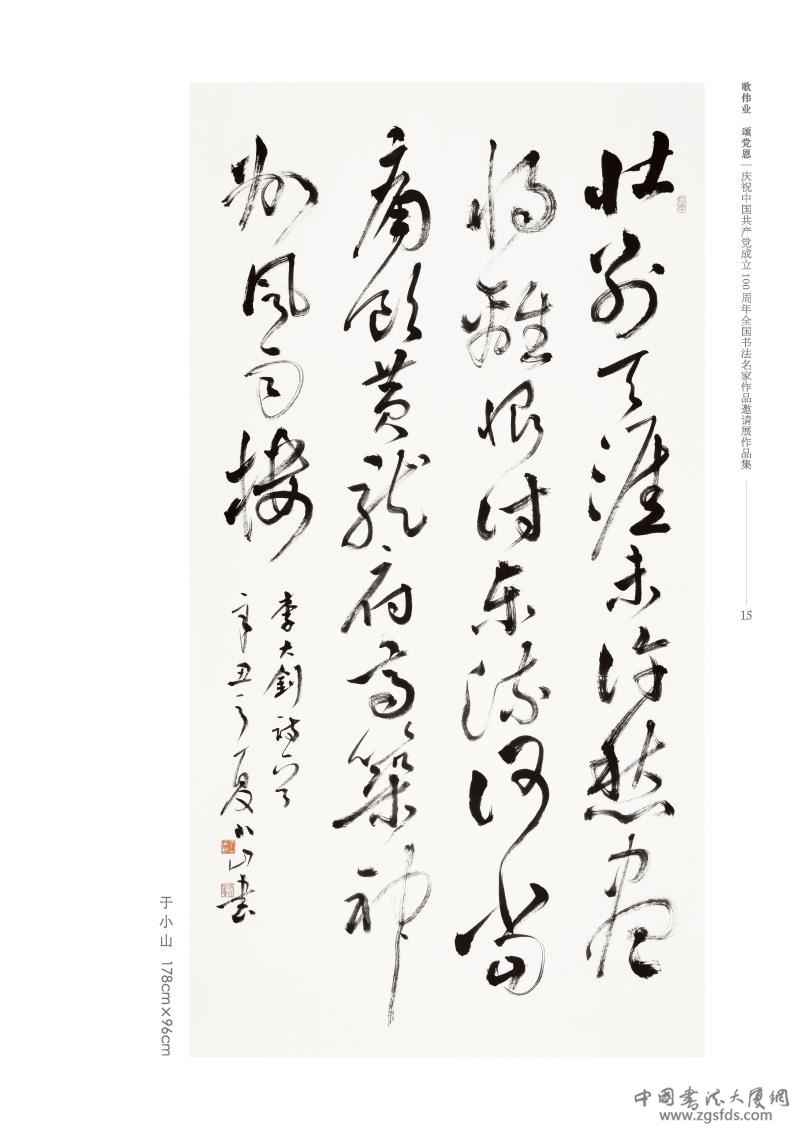 歌伟业 颂党恩 | 庆祝中国共产党成立100周年全国书法名家作品邀请展作品集
15
壮别天涯未许愁盡
将離恨付东流何当
痛飲黄龙府高築神
州風雨樓
李大釗诗一首
辛丑之夏小山書
于小山 178cm×96cm
中国書法大厦網
www.zgsfds.com